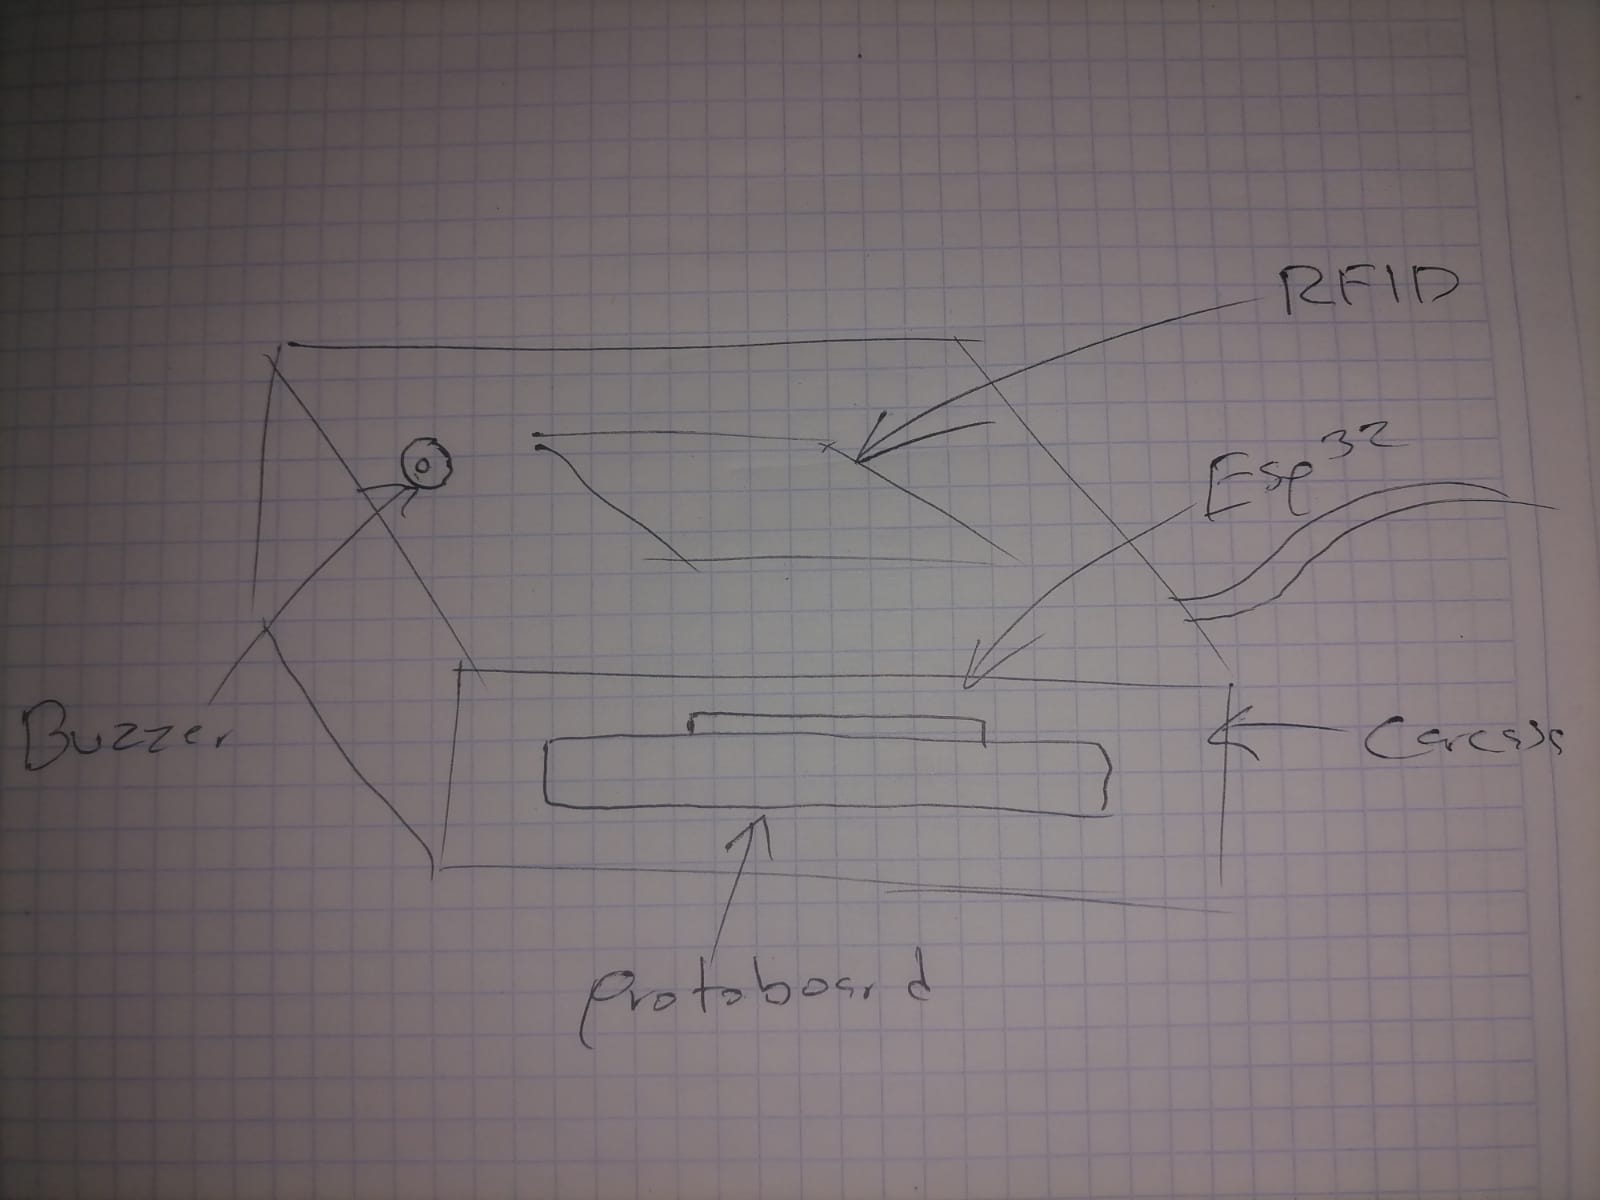 RFID
Esp32
Buzzer
Carcasa
Protoboard